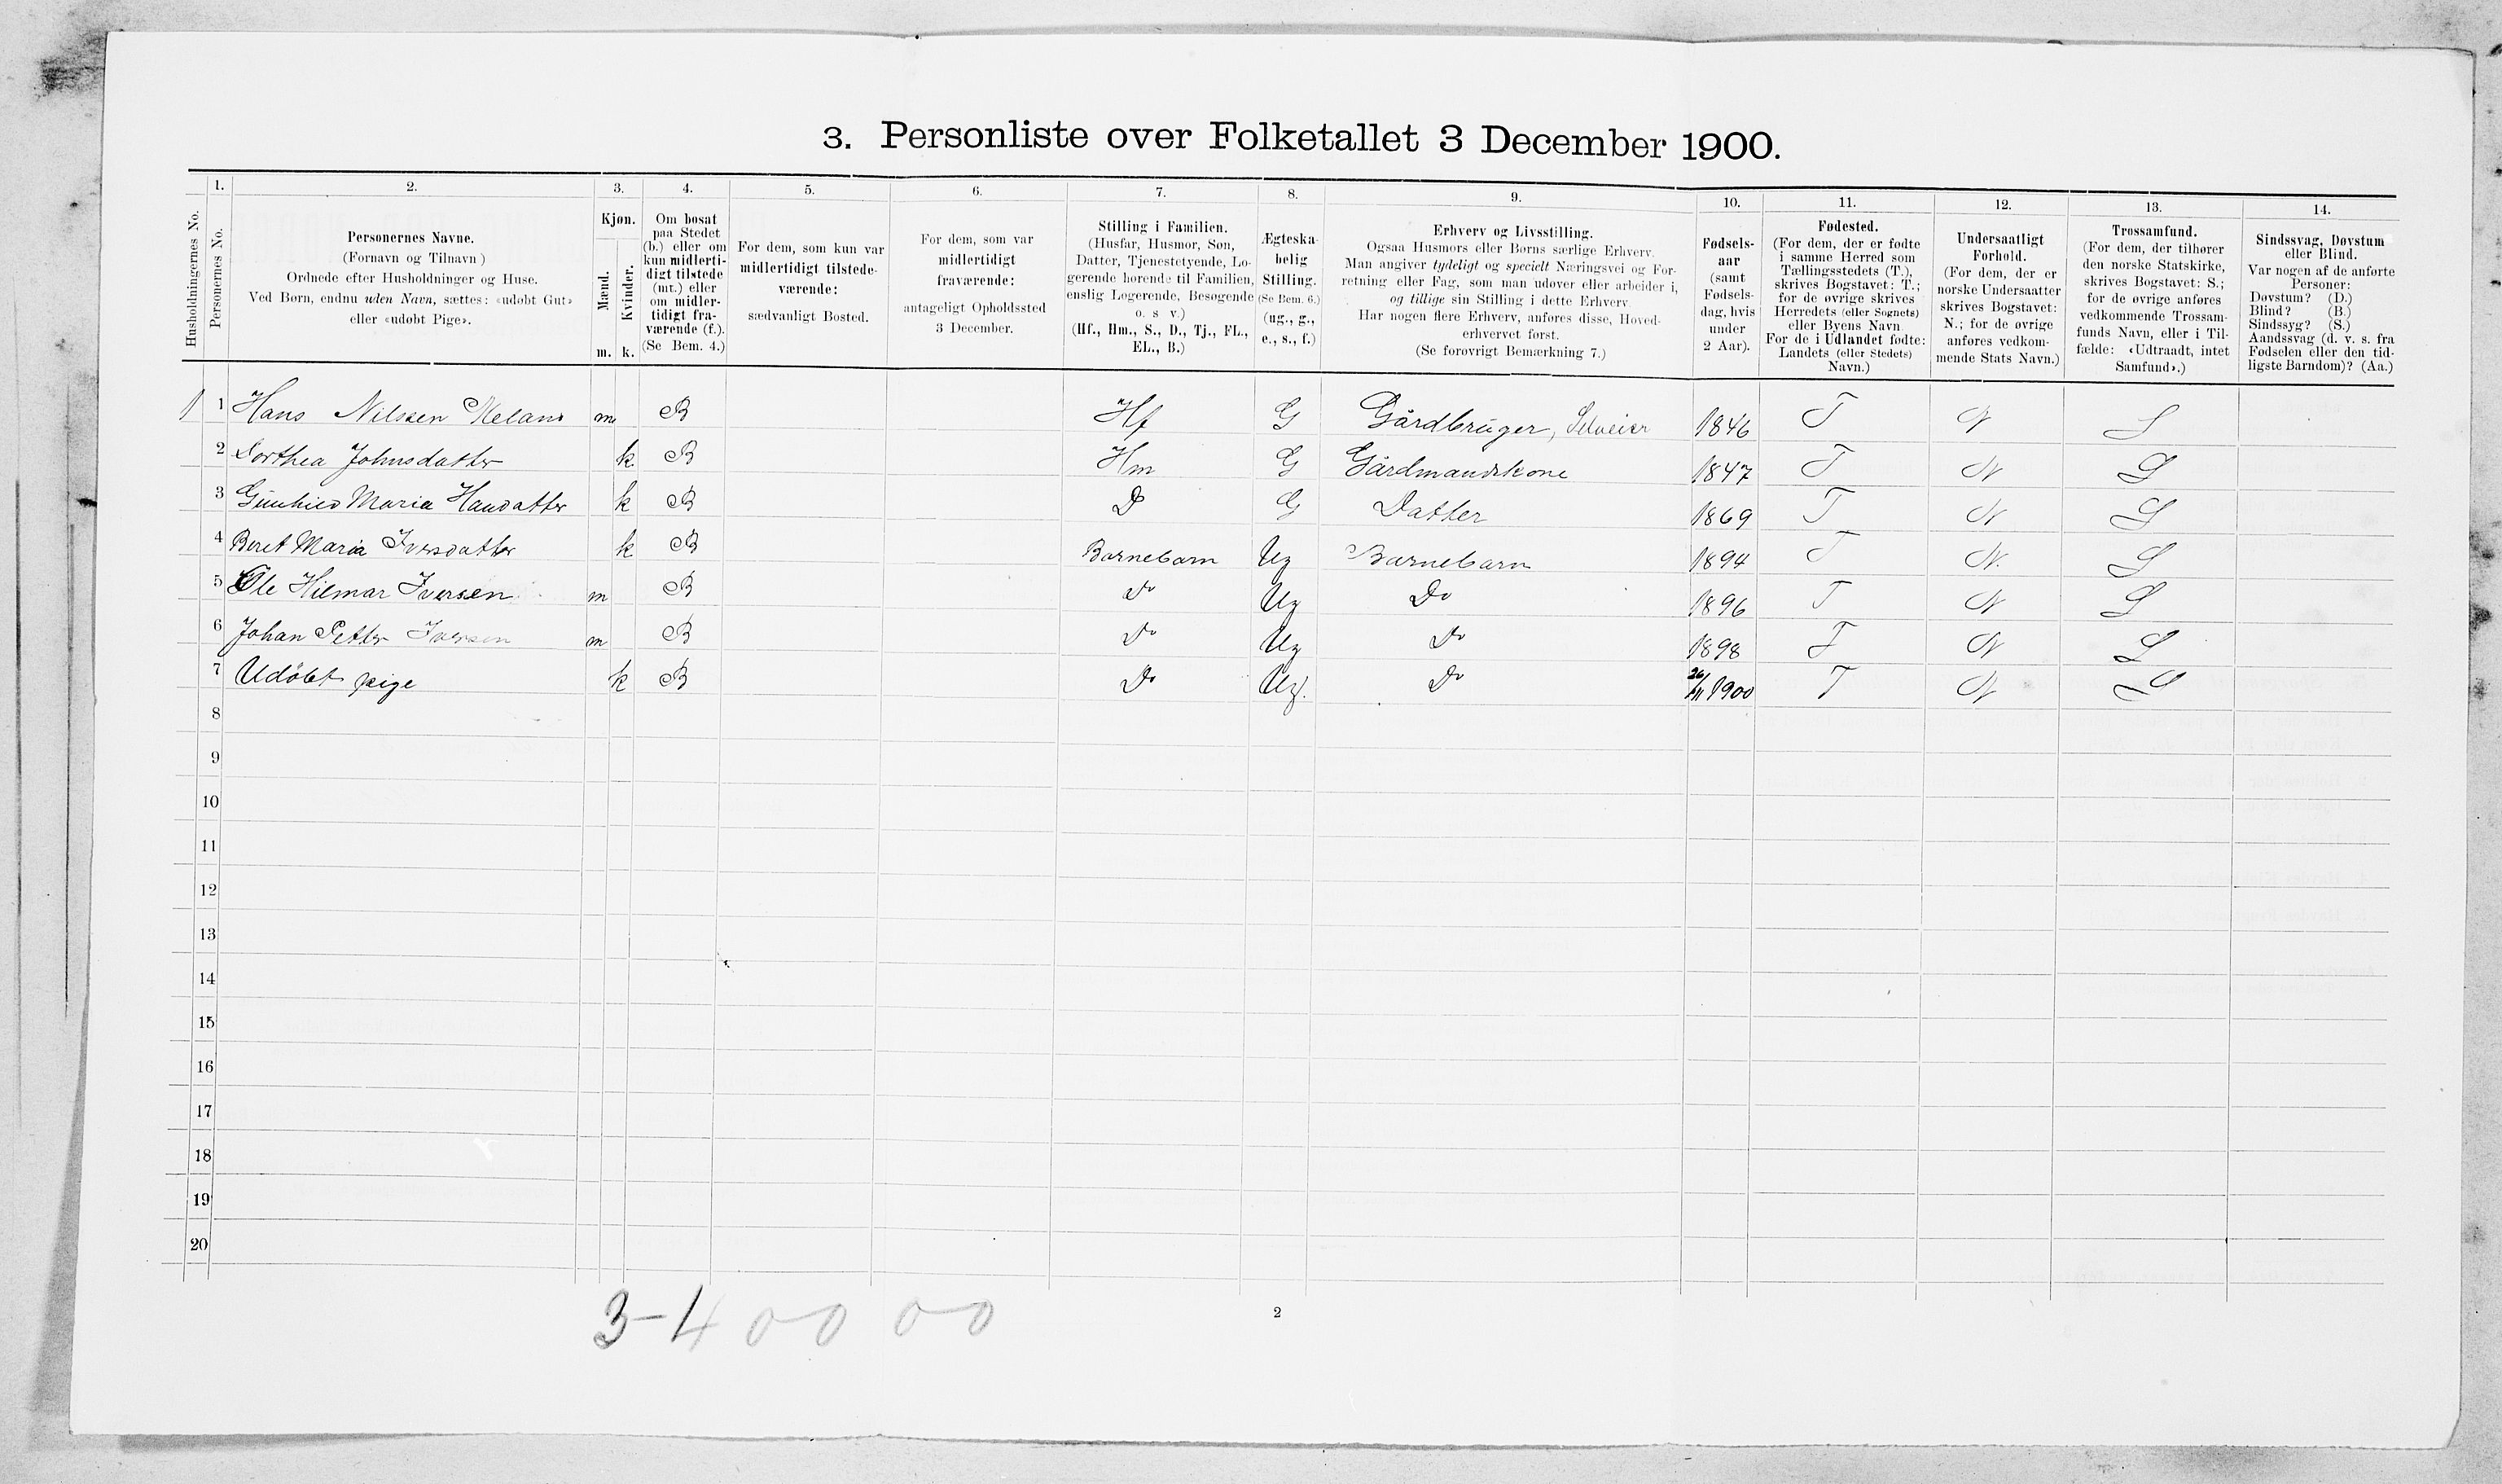 3. Personliste over Folketallet 3 December 1900.
1. 2. 3. 4. 5. 6. 7. 8. 9. 10. 11. 12. 13. 14.
Husholdningernes No.
Personernes No.
Personernes Navne.
(Fornavn og Tilnavn)
Ordnede efter Husholdninger og Huse.
Ved Børn, endnu uden Navn, sættes: «udøbt Gut»
eller «udøbt Pige».
Kjøn.
Mænd.
Kvinder.
m. k.
Om bosat
paa Stedet
(b.) eller om
kun midlerti-
digt tilstede
(mt.) eller
om midler-
tidigt fra-
værende (f.).
(Se Bem. 4.)
For dem, som kun var
midlertidigt tilstede-
værende:
sædvanligt Bosted.
For dem, som var
midlertidigt
fraværende:
antageligt Opholdssted
3 December.
Stilling i Familien.
(Husfar, Husmor, Søn,
Datter, Tjenestetyende, Lo-
gerende hørende til Familien,
enslig Logerende, Besøgende
o. s v.)
(Hf., Hm., S., D., Tj., FL.,
EL., B.)
Ægteska-
belig
Stilling.
(Se Bem. 6.)
(ug., g.,
e., s., f.)
Erhverv og Livsstilling.
Ogsaa Husmors eller Børns særlige Erhverv.
Man angiver tydeligt og specielt Næringsvei og For-
retning eller Fag, som man udøver eller arbeider i,
og tillige sin Stilling i dette Erhverv.
Har nogen flere Erhverv, anføres disse, Hoved-
erhvervet først.
(Se forøvrigt Bemærkning 7.)
Fødsels-
aar
(samt
Fødsels-
dag, hvis
under
2 Aar).
Fødested.
(For dem, der er fødte
i samme Herred som
Tællingsstedets (T.),
skrives Bogstavet: T.;
for de øvrige skrives
Herredets (eller Sognets)
eller Byens Navn.
For de i Udlandet fødte:
Landets (eller Stedets)
Navn.)
Undersaatligt
Forhold.
(For dem, der er
norske Undersaatter
skrives Bogstavet:
N.; for de øvrige
anføres vedkom-
mende Stats Navn.)
Trossamfund.
(For dem, der tilhører
den norske Statskirke,
skrives Bogstavet: S.;
for de øvrige anføres
vedkommende Trossam-
funds Navn, eller i Til-
fælde: «Udtraadt, intet
Samfund».)
Sindssvag, Døvstum
eller Blind.
Var nogen af de anførte
Personer:
Døvstum? (D.)
Blind? (B.)
Sindssyg? (S.)
Aandssvag (d. v. s. fra
Fødselen eller den tid-
ligste Barndom)? (Aa.)
1 1 Hans Nilssen m B Hf G Gårdbruger, Selveier 1846 T N S
2 Dorthea Johnsdatter k B Hm G Gårdmandskone 1847 T N S
3 Maria k B D G Datter 1869 T N S
4 Beret Maria Iversdatter k B Barnebarn Ug Barnebarn 1894 T N. S
5 Ole Hilmar Iversen m B Do Ug Do 1896 T N S
6 Johan Petter Iversen m B Do Ug Do 1898 T N S
7 Udöbt pige k B Do Ug. Do 26/11 1900 T N S
8
9
10
11
12
13
14
15
16
17
18
19
20
3-4 0 0 0 0
2